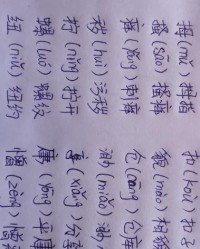 拇(mǔ) 拇指 扣(kòu) 扣子
搔(sāo) 搔痒 貌(mào) 相貌
痒(yǎng) 仓(cāng) 仓库
秽(huì) 污秽 渺(miǎo) 渺
拧(nǐng) 拧开 享(xiǎng) 分享
螺(luó) 螺纹 庸(yōng) 平庸
纽(niǔ) 纽约 憎(zēng) 憎